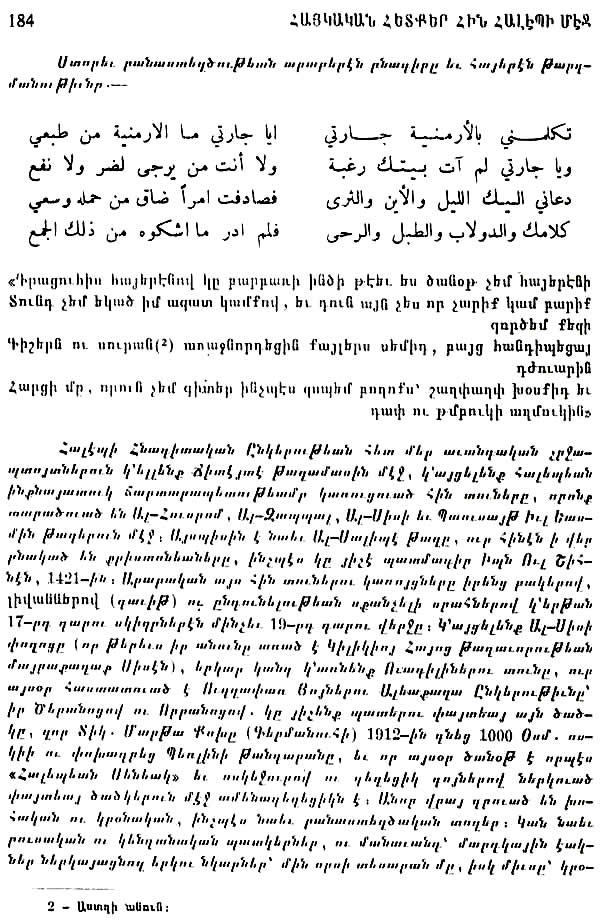 184 ՀԱՅԿԱԿԱՆ ՀԵՏՔԵՐ ՀԻՆ ՀԱԼԷՊԻ ՄԷՋ
Ստորեւ բանաստեղծութեան արաբերէն բնագիրը եւ Հայերէն թարգ-
մանութիւնը.—
ايا جارتي ما الارمنية من طبعي تكلمني بالأرمنية جارتي
ولا أنت من يرجى لضر ولا نفع ويا جارتي لم آت بيتك رغبة
فصادفت امرأ ضاق من حمله وسعي دعاني اليك الليل والأين والثرى
فلم ادر ما اشكوه من ذلك الجمع كلامك والدولاب والطبل والرحى
«Դրացուհիս հայերէնով կը բարբառի ինծի թէեւ ես ծանօթ չեմ հայերէնի
Տունդ չեմ եկած իմ ազատ կամքով, եւ դուն այն չես որ չարիք կամ բարիք
գործեմ քեզի
Գիշերն ու սուրան(²) առաջնորդեցին քայլերս սեմիդ, բայց հանդիպեցայ
դժուարին
Հարցի մը, որուն չեմ գիտեր ինչպէս զսպեմ բողոքս՝ շաղփաղփ խօսքիդ եւ
դափ ու թմբուկի աղմուկին»
Հալէպի Հնագիտական Ընկերութեան հետ մեր աւանդական շրջա-
պտոյտներուն կ'ելլենք Ճիտէյտէ թաղամասին մէջ, կ'այցելենք Հալեպեան
ինքնայատուկ ճարտարապետութեամբ կառուցուած հին տուները, որոնք
տարածուած են Ալ-Հուսրոմ, Ալ-Զապպալ, Ալ-Սիսի եւ Պաուսայթ Իւլ Եաս-
մին թաղերուն մէջ: Այսպիսին է նաեւ Ալ-Սալիպէ թաղը, ուր հինէն ի վեր
բնակած են քրիստոնեաները, ինչպէս կը յիշէ պատմագիր Իպն Ուլ Շիհ-
նէն, 1421-ին: Արաբական այս հին տուներու կառոյցները իրենց բակերով,
լիվաններով (գաւիթ) ու ընդունելութեան սքանչելի սրահներով կ'երթան
17-րդ դարու սկիզբներէն մինչեւ 19-րդ դարու վերջը: Կ'այցելենք Ալ-Սիսի
փողոցը (որ թերեւս իր անունը առած է Կիլիկիոյ Հայոց Թագաւորութեան
մայրաքաղաք Սիսէն), երկար կանգ կ'առնենք Ուագիլիներու տունը, ուր
այսօր հաստատուած է Ուղղափառ Յոյներու Աղքատաց Ընկերութիւնը՝
իր Ծերանոցով ու Որբանոցով. կը յիշենք պատերու փայտեայ այն ծած-
կը, զոր Տիկ. Մարթա Քոխը (Գերմանուհի) 1912-ին գնեց 1000 Օսմ. ոս-
կիի ու փոխադրեց Պեռլինի թանգարանը, եւ որ այսօր ծանօթ է որպէս
«Հալեպեան Սենեակ» եւ ոսկեջուրով ու գեղեցիկ գոյներով ներկուած
փայտեայ ծածկերուն մէջ ամենագեղեցիկն է: Անոր վրայ գրուած են խո-
հական ու կրօնական, ինչպէս նաեւ բանաստեղծական տողեր: Կան նաեւ
բուսական ու կենդանական պատկերներ, ու մանաւանդ՝ մարդկային էակ-
ներ ներկայացնող երկու նկարներ՝ մին որսի տեսարան մը, իսկ միւսը՝ կրօ-
2 – Աստղի անուն: